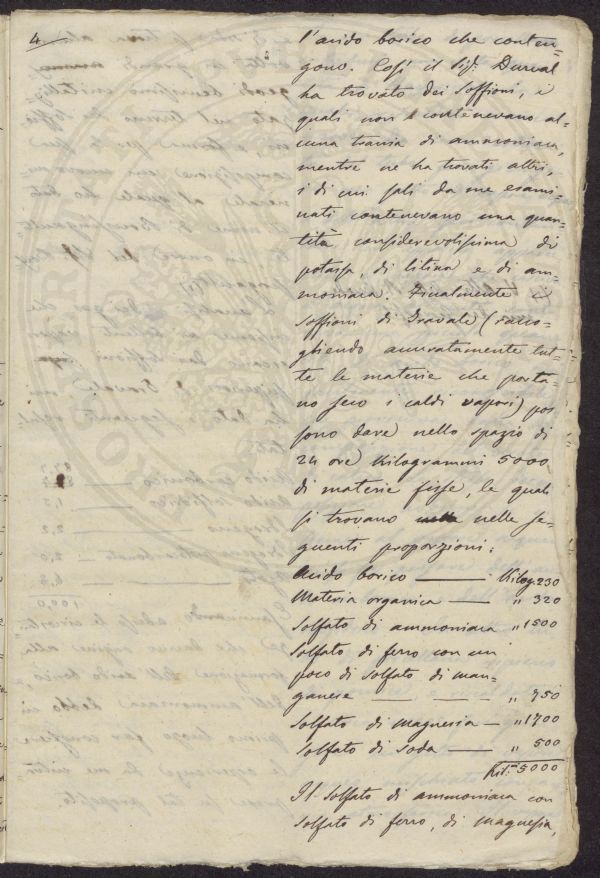 4.
l'acido borico che conten=
gono. Così il Sig. Durval
ha trovato dei Soffioni, i
quali non contenevano al=
cuna traccia di ammoniaca,
mentre ne ha trovati altri,
i di cui sali da me esami=
nati contenevano una quan=
tità considerevolissima di
potassa, di litina e di am=
moniaca. Finalmente i
Soffioni di Travale (racco=
gliendo accuratamente tut=
te le materie che porta=
no seco i caldi vapori) pos
sono dare nello spazio di
24 ore Kilogrammi 5000
di materie fisse, le quali
si trovano nelle se=
guenti proporzioni:
Acido borico — Kilog. 230
Materia organica — " 320
Solfato di ammoniaca " 1500
Solfato di ferro con un
poco di Solfato di man=
ganese — — — " 750
Solfato di Magnesia — " 1700
Solfato di Soda — " 500
Kil. 5000
Il Solfato di ammoniaca con
Solfato di ferro, di magnesia,